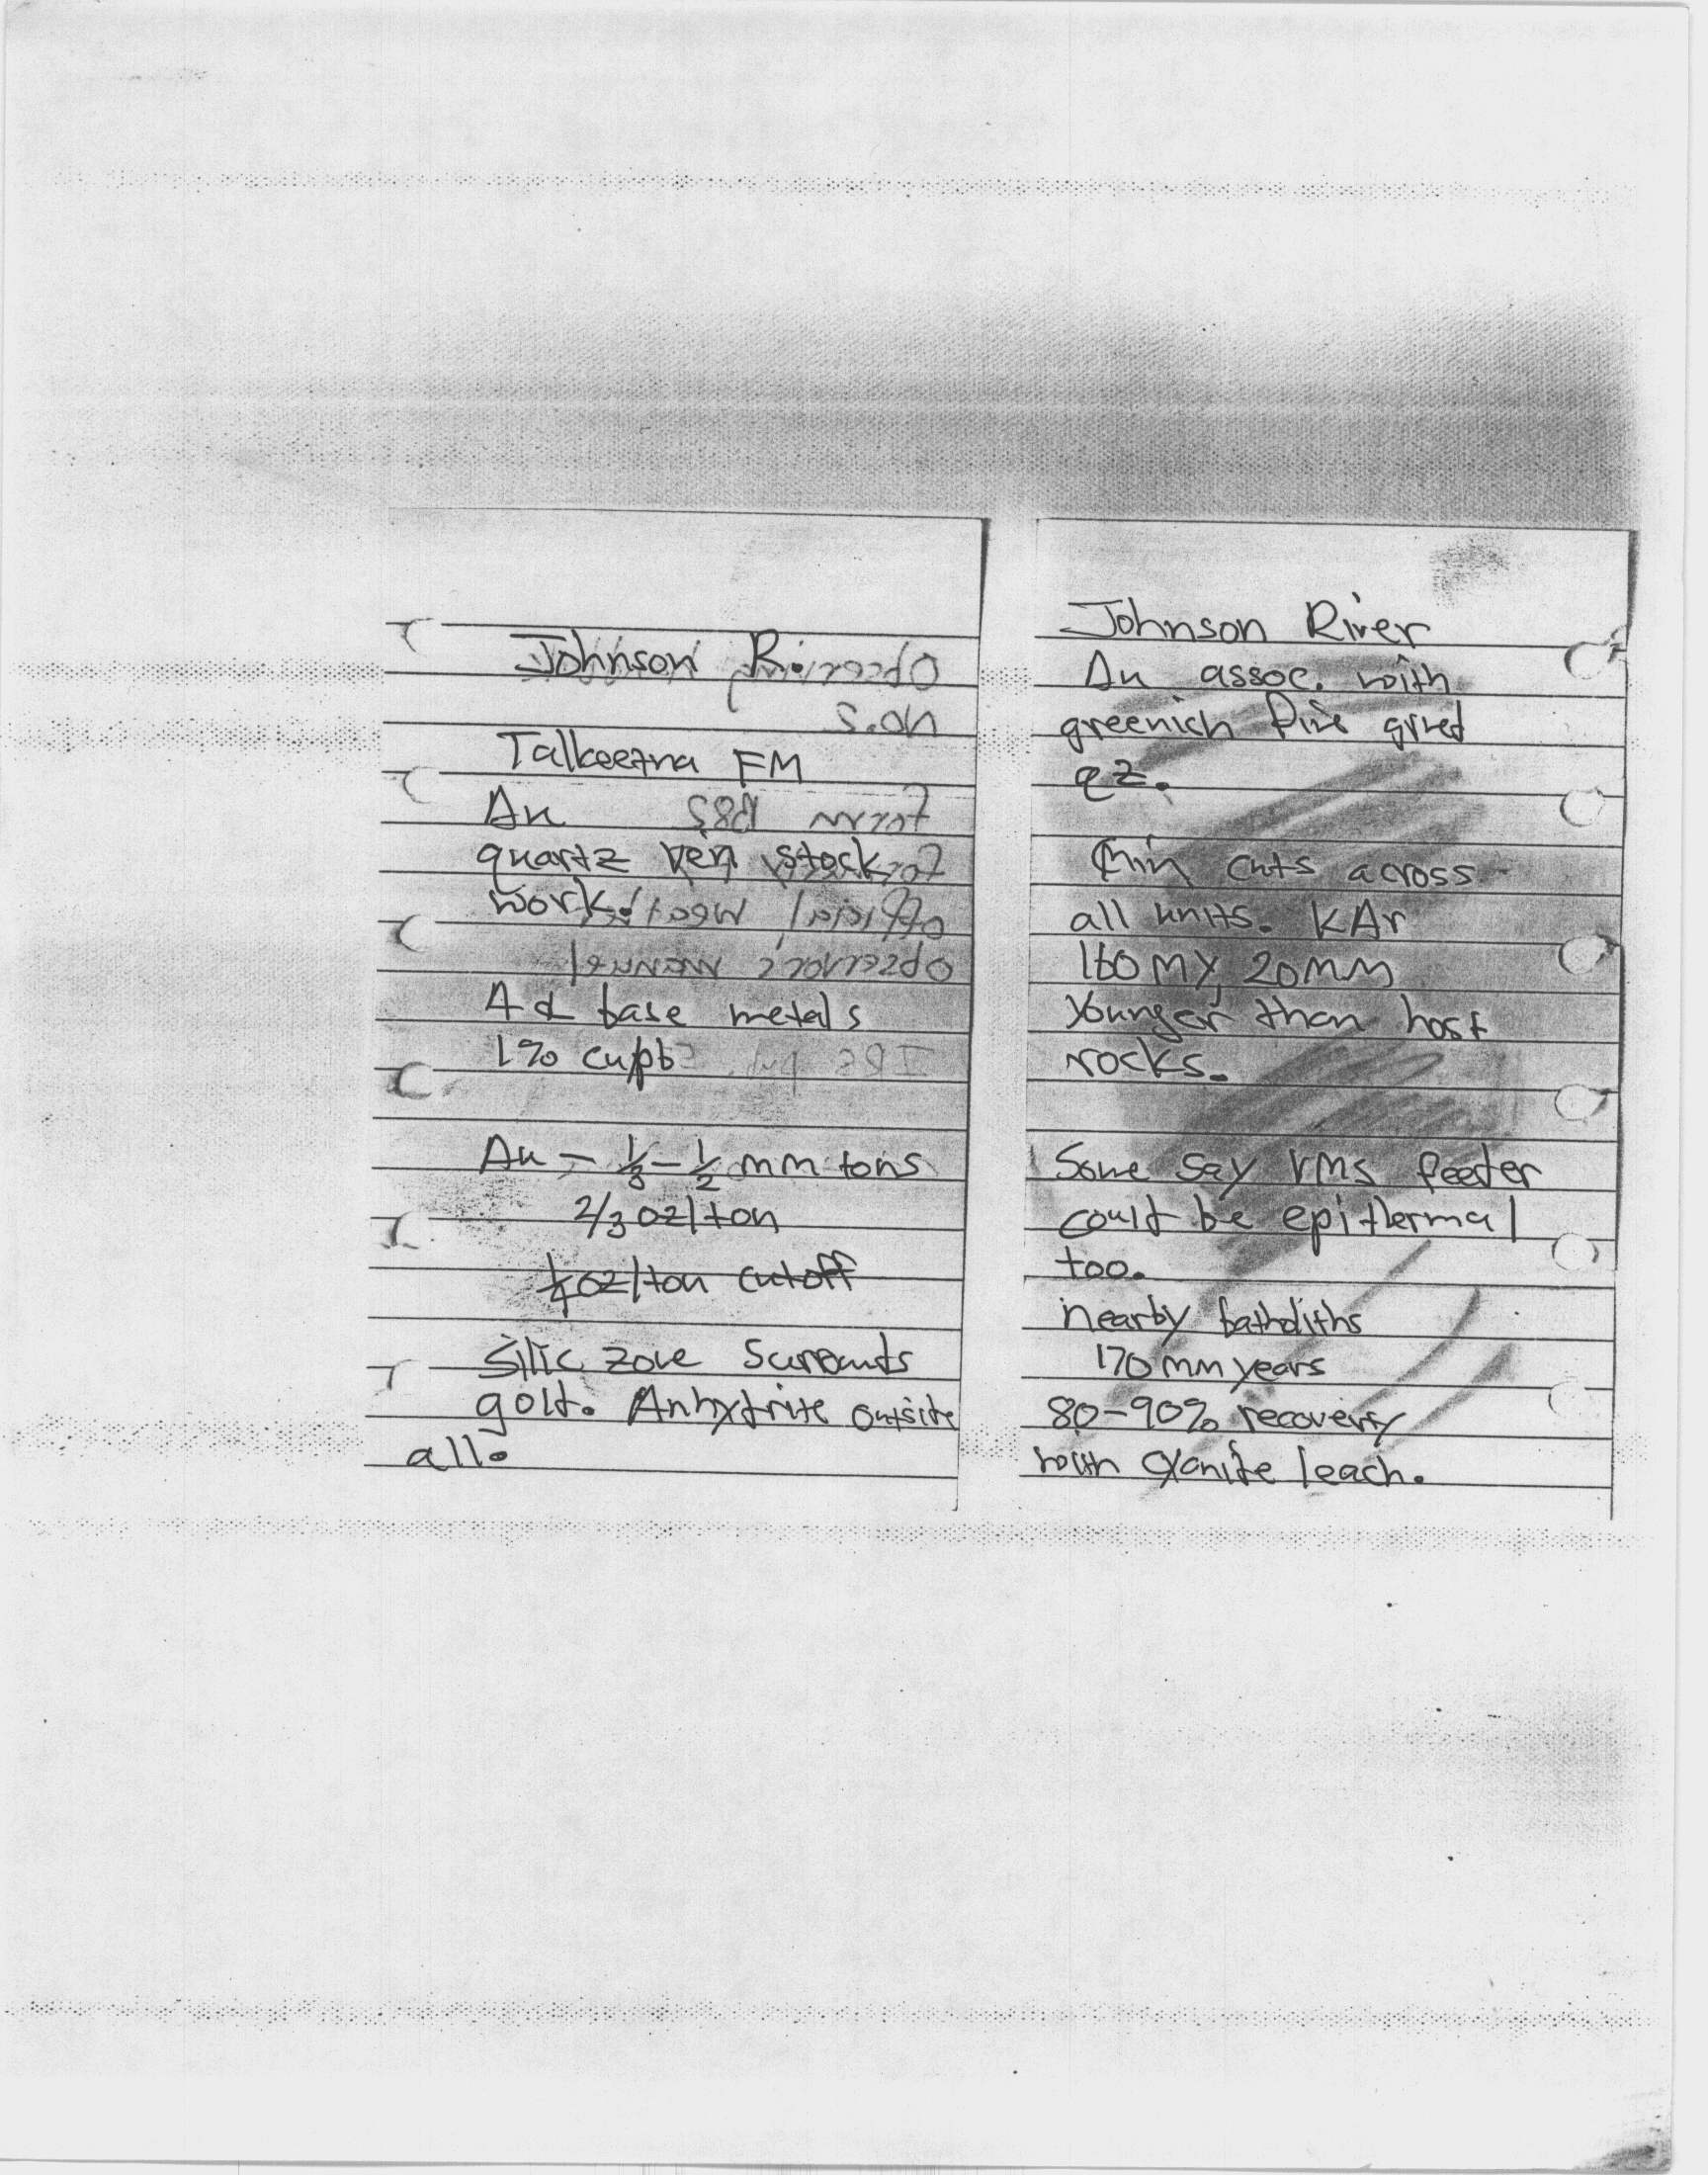 Johnson R.
Talkeetna FM
Au
quartz vein stock
work.
4 d base metals
1% cu/pb
Au - 1/3 - 1/2 mm tons
2/3 oz/ton
1/4 oz/ton cutoff
Silic zone Surrounds
gold. Anhydrite outside
all.
Johnson River
Au assoc. with
greenich fine grned
qz.
min cuts across
all units. KAr
160 MY, 20 MM
younger than host
rocks.
Some say VMS feeder
could be epithermal
too.
nearby batholiths
170 mm years
80-90% recovery
with cyanide leach.